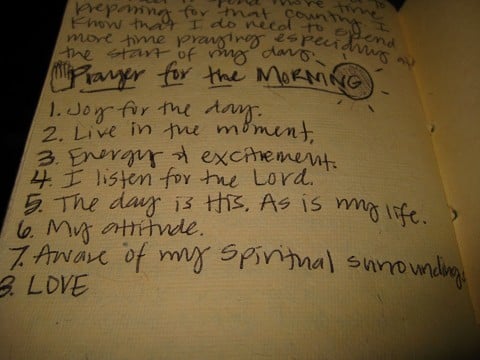 spend more time
preparing for that counting I
know that I do need to spend
more time praying especially at
the start of my day.
Prayer for the MORNING
1. Joy for the day.
2. Live in the moment.
3. Energy & excitement.
4. I listen for the Lord.
5. The day is HIS. As is my life.
6. My attitude.
7. Aware of my spiritual surroundings.
8. LOVE